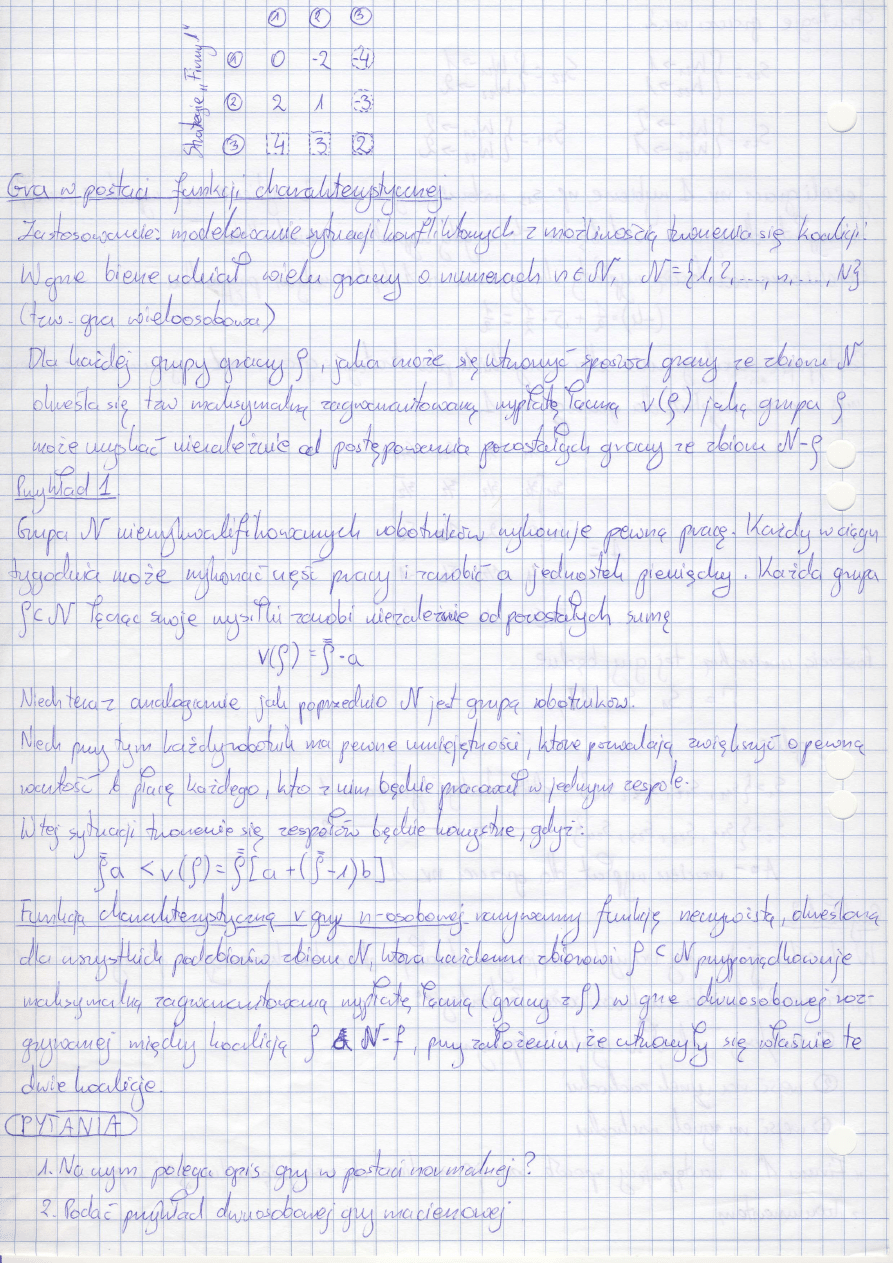 ① ② ③
Strategie „Firmy 1"
① 0 -2 -4
② 2 1 -3
③ 4 3 2
Gra w postaci funkcji charakterystycznej
Zastosowanie: modelowanie sytuacji konfliktowych z możliwością tworzenia się koalicji.
W grze bierze udział wielu graczy o numerach n ∈ N, N = {1, 2, ...., n, ...., N}
(tzw. gra wieloosobowa)
Dla każdej grupy graczy ρ, jaka może się utworzyć spośród graczy ze zbioru N
określa się tzw maksymalną zagwarantowaną wypłatę łączną v(ρ) jaką grupa ρ
może uzyskać niezależnie od postępowania pozostałych graczy ze zbioru N-ρ
Przykład 1
Grupa N niewykwalifikowanych robotników wykonuje pewną pracę. Każdy w ciągu
tygodnia może wykonać część pracy i zarobić a jednostek pieniędzy. Każda grupa
ρ ⊂ N łącząc swoje wysiłki zarobi niezależnie od pozostałych sumę
v(ρ) = ρ̿ · a
Niech teraz analogicznie jak poprzednio N jest grupą robotników.
Niech przy tym każdy robotnik ma pewne umiejętności, które pozwalają zwiększyć o pewną
wartość b płacę każdego, kto z nim będzie pracował w jednym zespole.
W tej sytuacji tworzenie się zespołów będzie korzystne, gdyż:
ρ̿a < v(ρ) = ρ̿[a + (ρ̿ - 1)b]
Funkcją charakterystyczną v gry n-osobowej nazywamy funkcję rzeczywistą, określoną
dla wszystkich podzbiorów zbioru N, która każdemu zbiorowi ρ ⊂ N przyporządkowuje
maksymalną zagwarantowaną wypłatę łączną (graczy z ρ) w grze dwuosobowej roz-
grywanej między koalicją ρ a N-ρ, przy założeniu, że utworzyły się właśnie te
dwie koalicje.
PYTANIA
1. Na czym polega opis gry w postaci normalnej?
2. Podać przykład dwuosobowej gry macierzowej